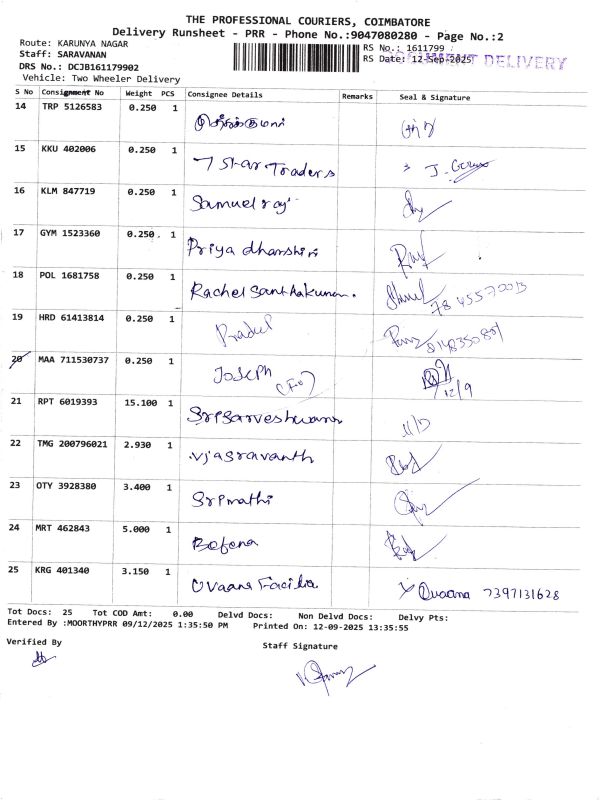 THE PROFESSIONAL COURIERS, COIMBATORE
Delivery Runsheet - PRR - Phone No.:9047080280 - Page No.:2
Route: KARUNYA NAGAR
Staff: SARAVANAN
DRS No.: DCJB161179902
Vehicle: Two Wheeler Delivery
RS No.: 1611799
RS Date: 12-Sep-2025
DELIVERY
S No Consignment No Weight PCS Consignee Details Remarks Seal & Signature
14 TRP 5126583 0.250 1
15 KKU 402006 0.250 1 7 Star Traders J.
16 KLM 847719 0.250 1 Samuel raj
17 GYM 1523360 0.250 1 Priya dharshini
18 POL 1681758 0.250 1 Rachel Santhakumar.
19 HRD 61413814 0.250 1 Pradeep
20 MAA 711530737 0.250 1 Joseph 12/9
21 RPT 6019393 15.100 1 N/D
22 TMG 200796021 2.930 1 Vjasravanth
23 OTY 3928380 3.400 1 Srimathi
24 MRT 462843 5.000 1
25 KRG 401340 3.150 1 Ovaana 7397131628
Tot Docs: 25 Tot COD Amt: 0.00 Delvd Docs: Non Delvd Docs: Delvy Pts:
Entered By :MOORTHYPRR 09/12/2025 1:35:50 PM Printed On: 12-09-2025 13:35:55
Verified By
Staff Signature